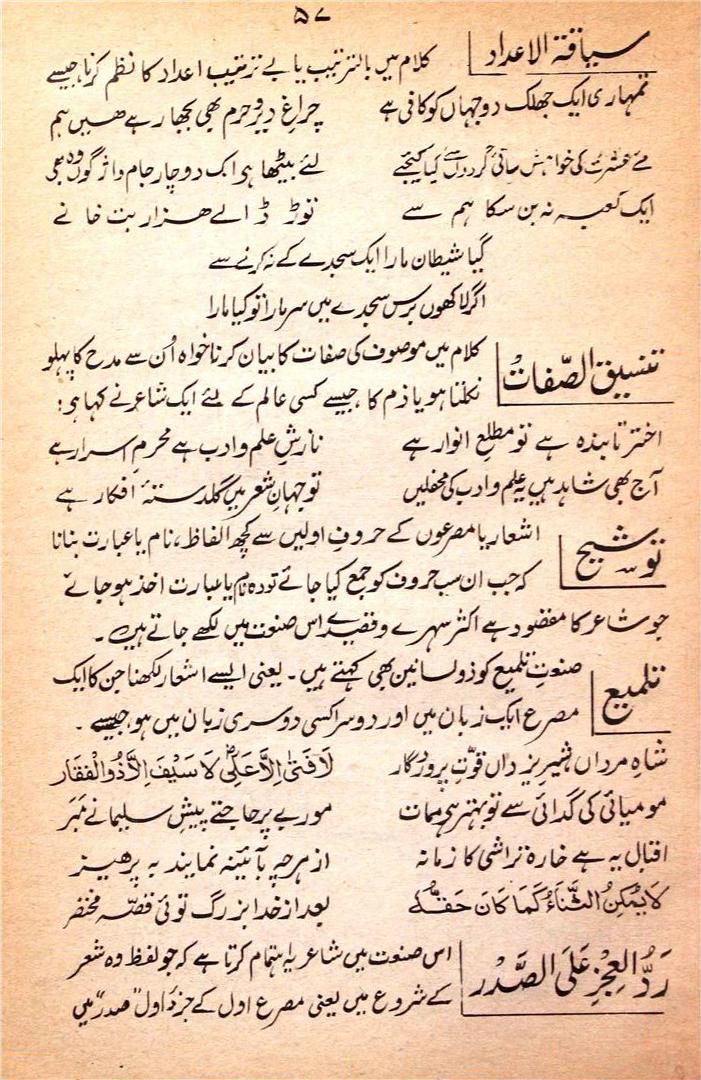 ۵۷
سیاقۃ الاعداد کلام میں بالترتیب یا بے ترتیب اعداد کا نظم کرنا، جیسے
تمہاری ایک جھلک دو جہاں کو کافی ہے چراغِ دیر و حرم بھی بجھا رہے ھیں ہم
مئے عشرت کی خواہش ساقی گردوں سے کیا کیجئے لئے بیٹھا ہی اک دو چار جام واژگوں وہ بھی
ایک کعبہ نہ بن سکا ہم سے توڑ ڈالے ھزار بت خانے
گیا شیطان مارا ایک سجدے کے نہ کرنے سے
اگر لاکھوں برس سجدے میں سر مارا تو کیا مارا
تنسیق الصّفات کلام میں موصوف کی صفات کا بیان کرنا خواہ اُن سے مدح کا پہلو
نکلتا ہو یا ذم کا، جیسے کسی عالم کے لئے ایک شاعر نے کہا ہی:
اختر تابندہ ہے تو مطلعِ انوار ہے نازشِ علم و ادب ہے محرم اسرار ہے
آج بھی شاہد ہیں یہ علم و ادب کی محفلیں تو جہانِ شعر میں گلدستۂ افکار ہے
توشیح اشعار یا مصرعوں کے حروفِ اولیں سے کچھ الفاظ، نام یا عبارت بنانا
کہ جب ان سب حروف کو جمع کیا جائے تو وہ نام یا عبارت اخذ ہو جائے
جو شاعر کا مقصود ہے اکثر سہرے و قصیدے اس صنعت میں لکھے جاتے ہیں۔
تلمیع صنعتِ تلمیع کو ذو لسانین بھی کہتے ہیں۔ یعنی ایسے اشعار لکھنا جن کا ایک
مصرع ایک زبان میں اور دوسرا کسی دوسری زبان میں ہو، جیسے۔
شاہِ مرداں شیرِ یزداں قوتِ پروردگار لَا فَتیٰ اِلَّا عَلِیؓ لَا سَیْفَ اِلَّا ذُوالْفِقَار
مومیائی کی گدائی سے تو بہتر ہی ممات مورِ بے پر حاجتے پیشِ سلیمانے مَبَر
اقبال یہ ہے خارہ تراشی کا زمانہ از ہر چہ بآئینہ نمایند بہ پرھیز
لَا یُمْکِنُ الثَّنَاءُ کَمَا کَانَ حَقَّہٗ بعد از خدا بزرگ توئی قصّہ مختصر
رَدُّ العِجْزِ عَلَی الصَّدْر اس صنعت میں شاعر یہ اہتمام کرتا ہے کہ جو لفظ وہ شعر
کے شروع میں یعنی مصرع اول کے جزوِ اول "صدر" میں